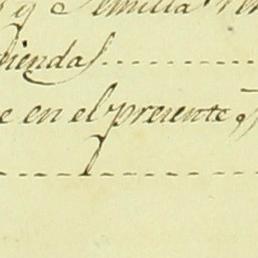 y Semilla
iendas
e en el presente